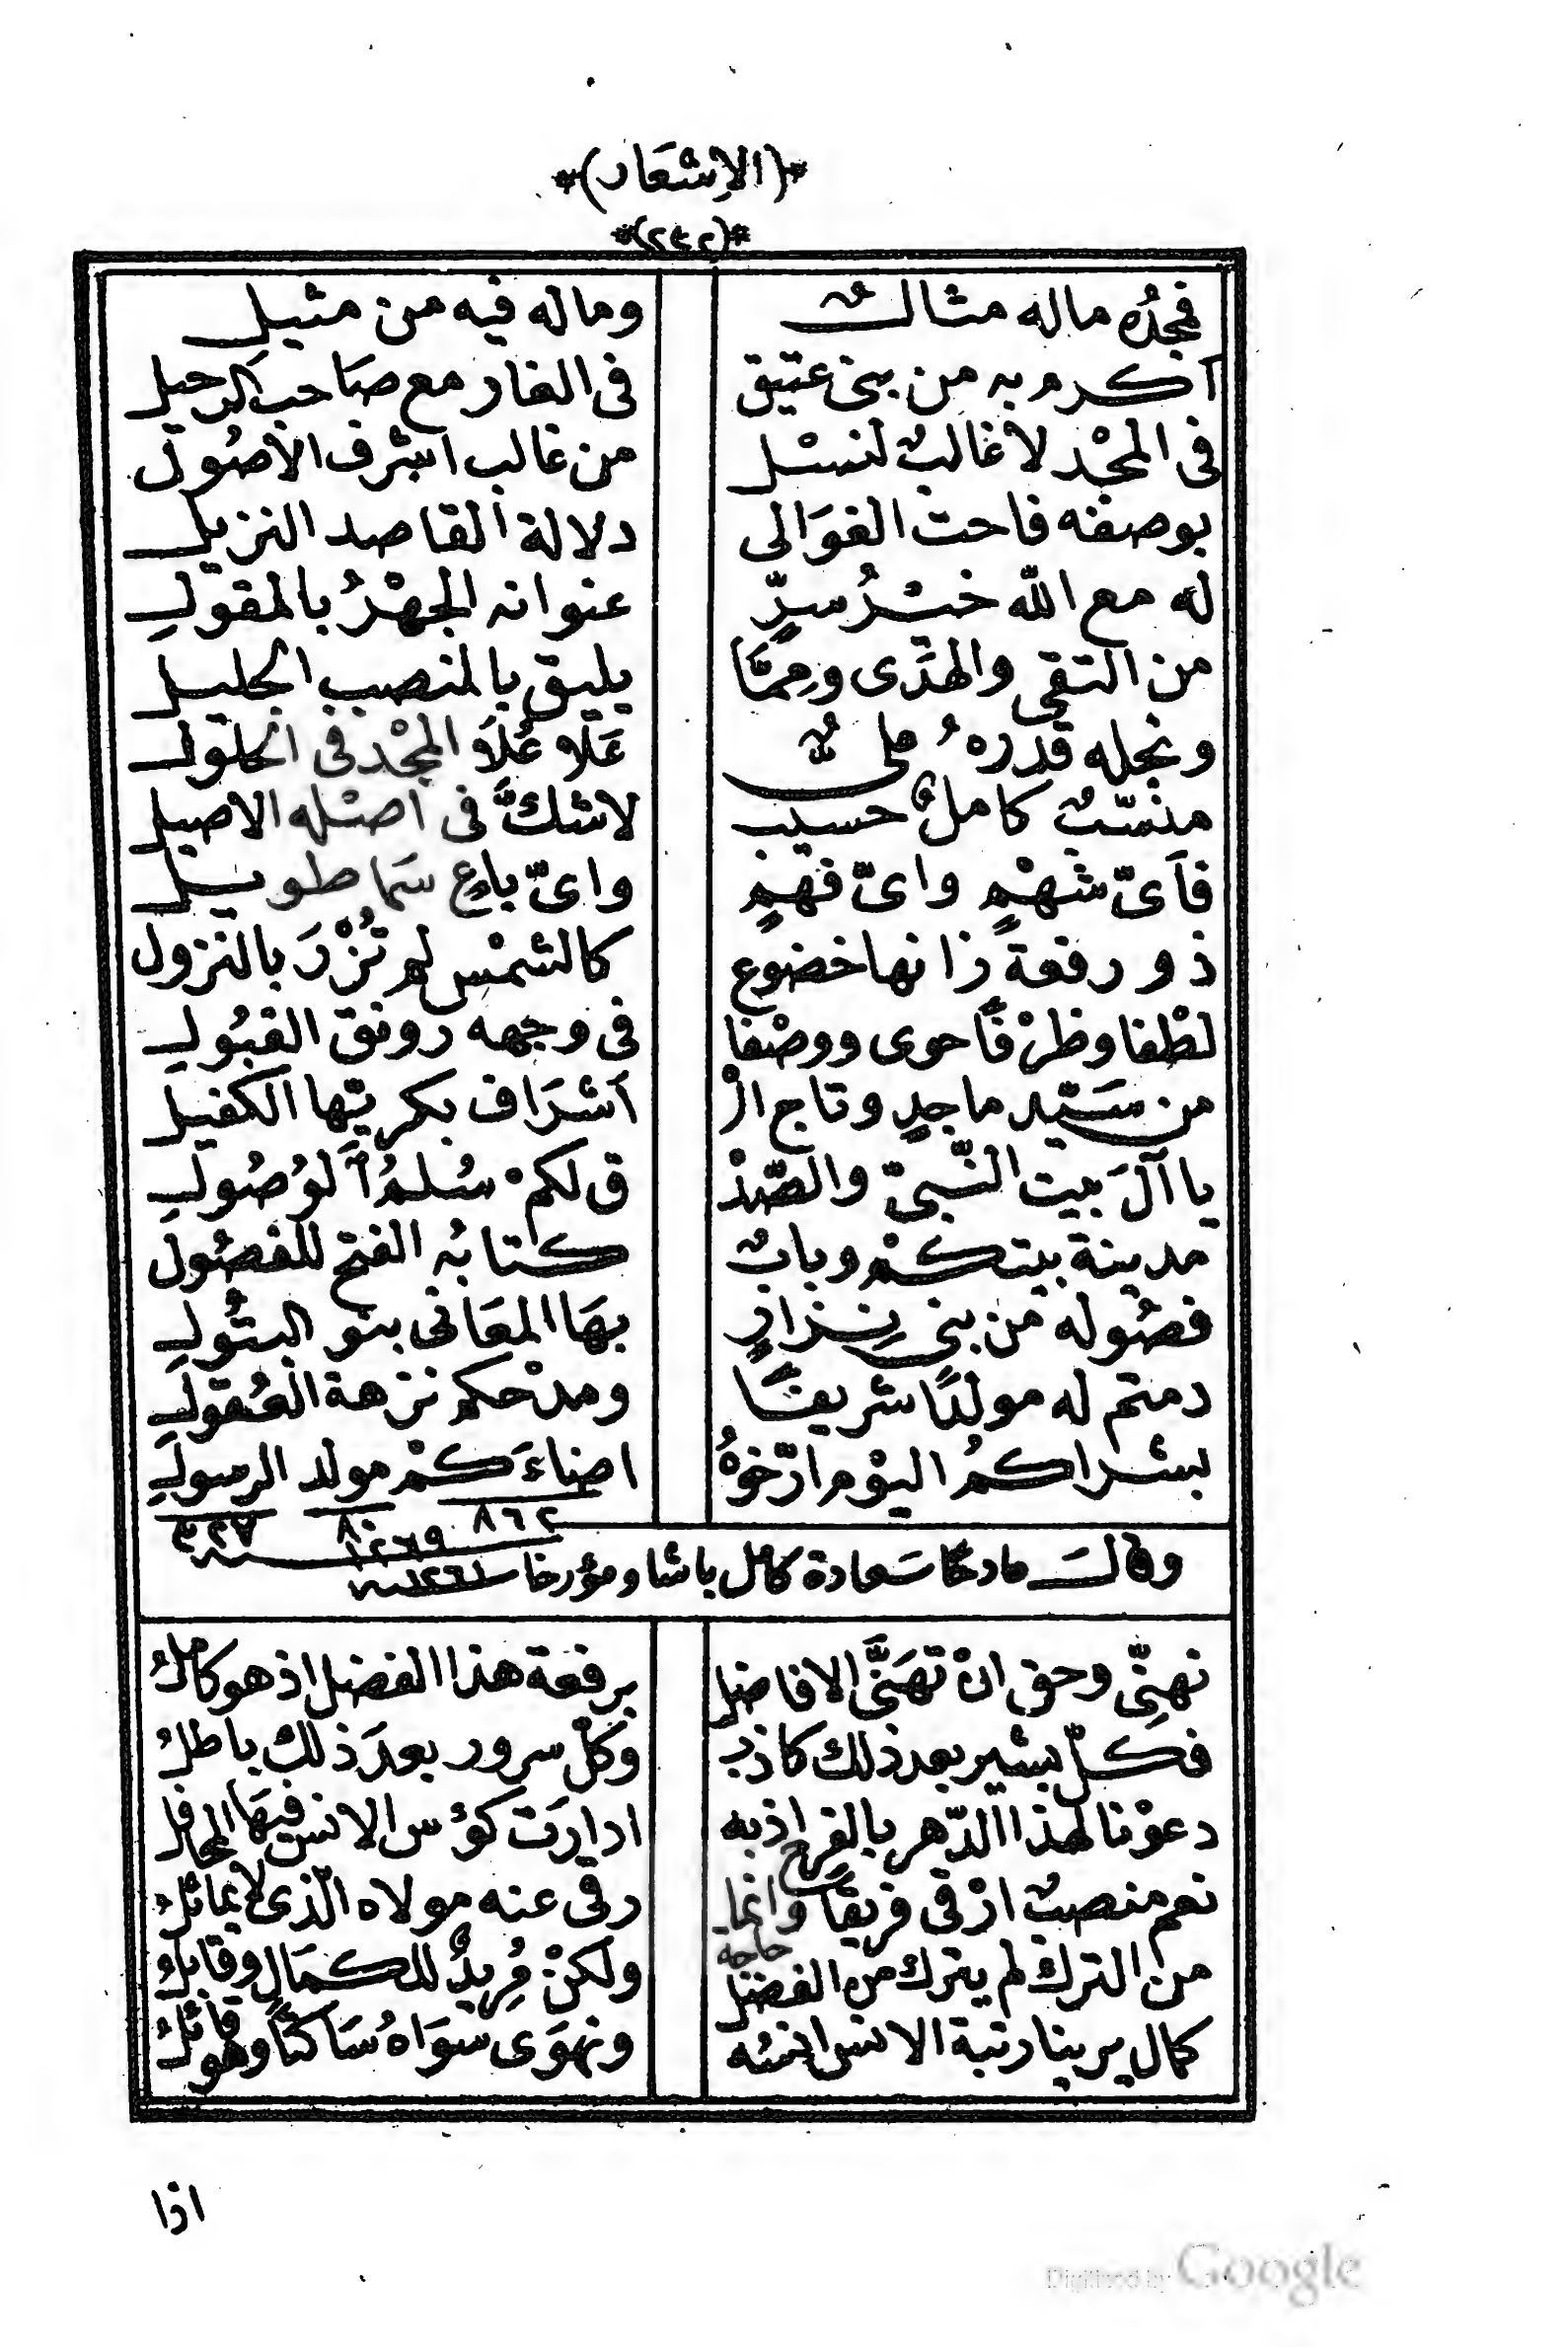 *(الاِشعَار)*
*(٢٤٢)*
فمجدُه ماله مثالٌ وماله فيه من مثيلِ
اكرم به من بنى عتيق فى الغار مع صَاحب الرحيل
فى المجْد لا غالبٌ لنسْل من غالب اشرف الاصُول
بوصفه فاحت الغوَالى دلالة القاصد النزيل
له مع اللّه خيْرُ سرٍّ عنوانه الجهْرُ بالمقولِ
من التقى والهدَى وممَّا يليق بالمنصب الجليل
ونجله قدرهُ علىٌّ عَلَا عُلَا المجْد فى الحلول
منسّبٌ كاملٌ حسيب لاشكَّ فى اصْله الاصيل
فاَىّ شهْمٍ واىّ فهمٍ واىّ باعٍ سَما طويل
ذو رفعة زانها خضوع كالشمْس لم تُزْرَ بالنزول
لطْفا وظرْفًا حوى ووصْفا فى وجهه رونق القبُولِ
من سَيّد ماجدٍ وتاج الْـ اَشرَاف بكريّها الكفيل
يا آلَ بيت النّبىّ والصّدْ ق لكمْ سُلمُ الوُصُولِ
مدينة بيتكمْ وبابٌ كتابُه الفتح للفصُول
فصُوله من بنى نزارٍ بهَا المعَانى بنو البتُولِ
دمتم له مولدًا شريفًا ومدْحكم نزهة العُقولِ
بشراكمُ اليوْم ارّخوهُ اضاءَكمْ مولد الرسولِ
٨٦٢ ٨٠ ٣٢٧
١٢٦٩ سنه
وقالَ مادحًا سَعادة كامل باشا ومؤرخا سنه ١٢٦١
نهنِّى وحق انْ تهَنَّى الافاضل برفعة هذا الفضل اذ هو كاملُ
فكلّ بشير بعد ذلك كاذب وكلّ سرور بعدَ ذلك باطلُ
دعوْنا لهذا الدّهر بالفرح اذ به ادارَت كؤس الانس فيهَا المحافل
نعم منصبٌ ارْقى فريقًا وانما رقى عنه مولاه الّذى لا يماثلُ
من الترك لم يترك من الفضل حاجة ولكنْ مُريدٌ للكمَالِ وقابلُ
كمال يرينا رتبة الانس انسُه ونهوَى سوَاهُ سَاكتًا وهو قائلُ
اذا
Digitized by Google